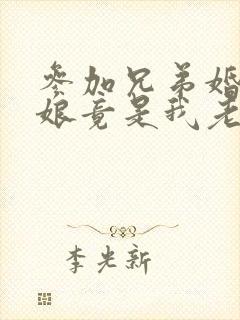 参加兄弟婚
娘竟是我老
李光新